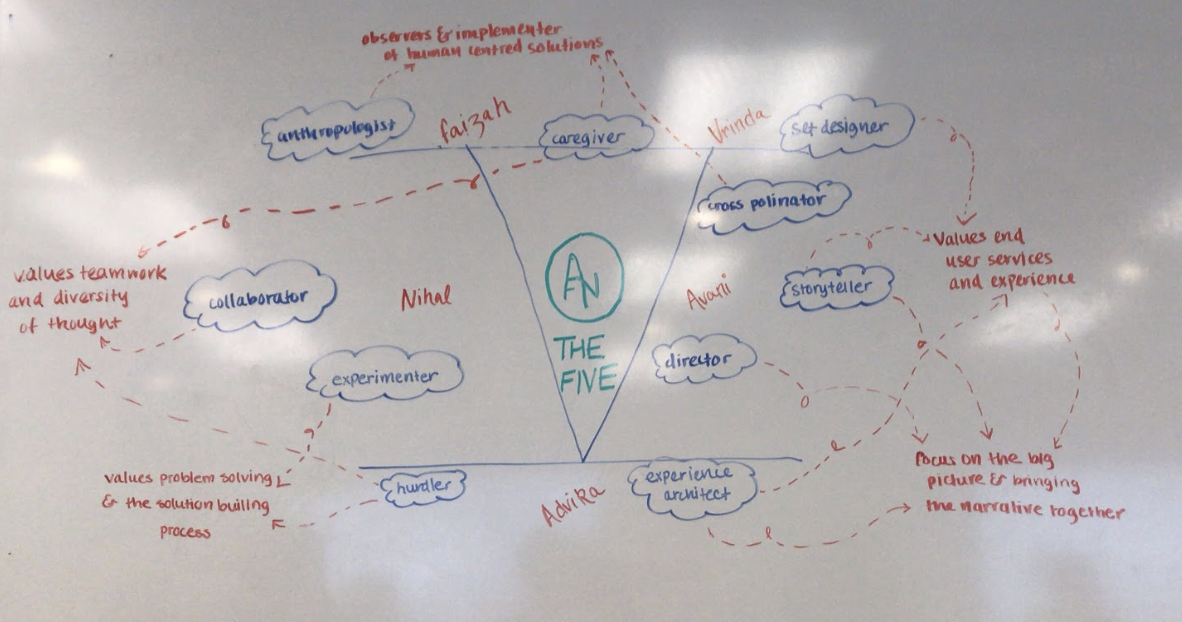 observers & implementer
of human centred solutions
anthropologist
faizah
caregiver
Vrinda
set designer
cross polinator
values teamwork
and diversity
of thought
collaborator
Nihal
AN
THE
FIVE
Avani
storyteller
Values end
user services
and experience
experimenter
director
values problem solving
& the solution builing
process
hurdler
Advika
experience
architect
focus on the big
picture & bringing
the narrative together